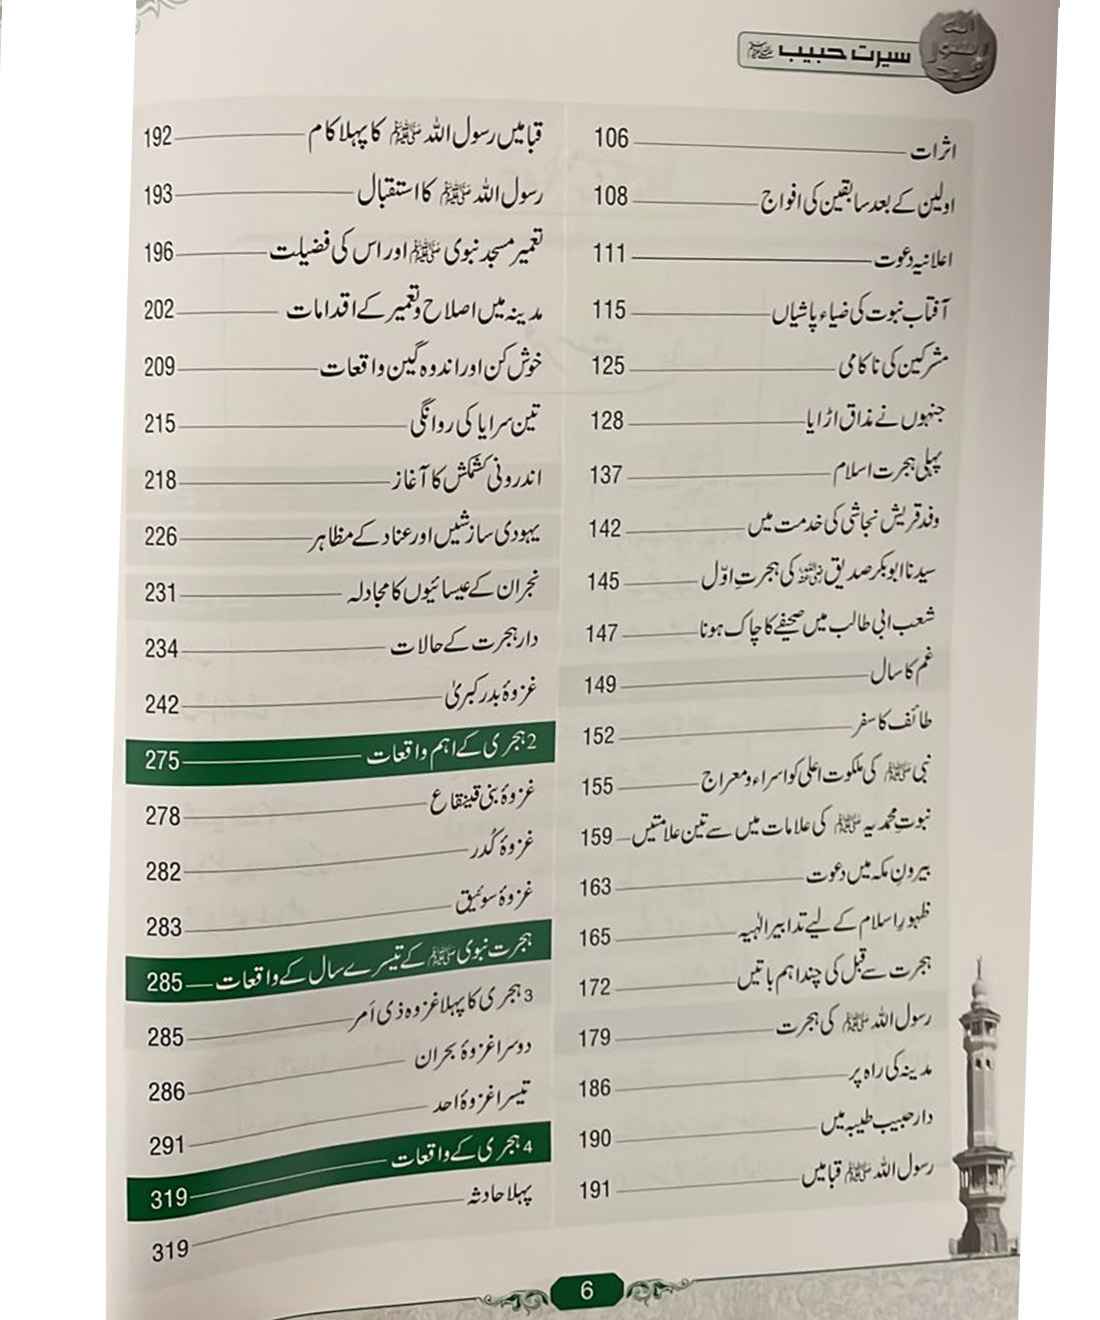 سیرت حبیب ﷺ
اثرات 106
اولین کے بعد سابقین کی افواج 108
اعلانیہ دعوت 111
آفتاب نبوت کی ضیاء پاشیاں 115
مشرکین کی ناکامی 125
جنہوں نے مذاق اڑایا 128
پہلی ہجرت اسلام 137
وفد قریش نجاشی کی خدمت میں 142
سیدنا ابوبکر صدیق رضی اللہ عنہ کی ہجرتِ اوّل 145
شعب ابی طالب میں صحیفے کا چاک ہونا 147
غم کا سال 149
طائف کا سفر 152
نبی ﷺ کی ملکوت اعلی کو اسراء و معراج 155
نبوتِ محمدیہ ﷺ کی علامات میں سے تین علامتیں 159
بیرونِ مکہ میں دعوت 163
ظہورِ اسلام کے لیے تدابیر الٰہیہ 165
ہجرت سے قبل کی چند اہم باتیں 172
رسول اللہ ﷺ کی ہجرت 179
مدینہ کی راہ پر 186
دار حبیب طیبہ میں 190
رسول اللہ ﷺ قبا میں 191
قبا میں رسول اللہ ﷺ کا پہلا کام 192
رسول اللہ ﷺ کا استقبال 193
تعمیر مسجد نبوی ﷺ اور اس کی فضیلت 196
مدینہ میں اصلاح و تعمیر کے اقدامات 202
خوش کن اور اندوہ گین واقعات 209
تین سرایا کی روانگی 215
اندرونی کشمکش کا آغاز 218
یہودی سازشیں اور عناد کے مظاہر 226
نجران کے عیسائیوں کا مجادلہ 231
دار ہجرت کے حالات 234
غزوۂ بدر کبریٰ 242
2 ہجری کے اہم واقعات 275
غزوۂ بنی قینقاع 278
غزوۂ کُدر 282
غزوۂ سوئیق 283
ہجرت نبوی ﷺ کے تیسرے سال کے واقعات 285
3 ہجری کا پہلا غزوہ ذی اَمر 285
دوسرا غزوۂ بحران 286
تیسرا غزوۂ احد 291
4 ہجری کے واقعات 319
پہلا حادثہ 319
6